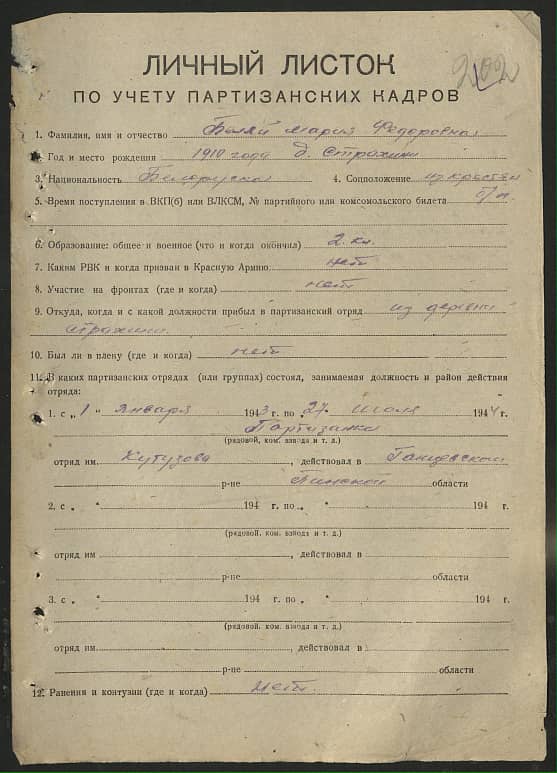 202
ЛИЧНЫЙ ЛИСТОК
ПО УЧЕТУ ПАРТИЗАНСКИХ КАДРОВ
1. Фамилия, имя и отчество Белей Мария Федоровна
2. Год и место рождения 1910 года д. Страхини
3. Национальность Белоруска 4. Соцположение из крестьян
5. Время поступления в ВКП(б) или ВЛКСМ, № партийного или комсомольского билета б/п
6. Образование: общее и военное (что и когда окончил) 2. кл.
7. Каким РВК и когда призван в Красную Армию нет
8. Участие на фронтах (где и когда) нет
9. Откуда, когда и с какой должности прибыл в партизанский отряд из деревни
Страхини
10. Был ли в плену (где и когда) нет
11. В каких партизанских отрядах (или группах) состоял, занимаемая должность и район действия
отряда:
1. с „1" января 1943 г. по „27" июля 1944 г.
Партизанка
(рядовой, ком. взвода и т. д.)
отряд им. Кутузова, действовал в Ганцевском
р-не Пинской области
2. с „ " 194 г. по „ " 194 г.
(рядовой, ком. взвода и т. д.)
отряд им , действовал в
р-не области
3. с „ " 194 г. по „ " 194 г.
(рядовой, ком. взвода и т. д.)
отряд им. , действовал в
р-не области
12. Ранения и контузии (где и когда) нет.